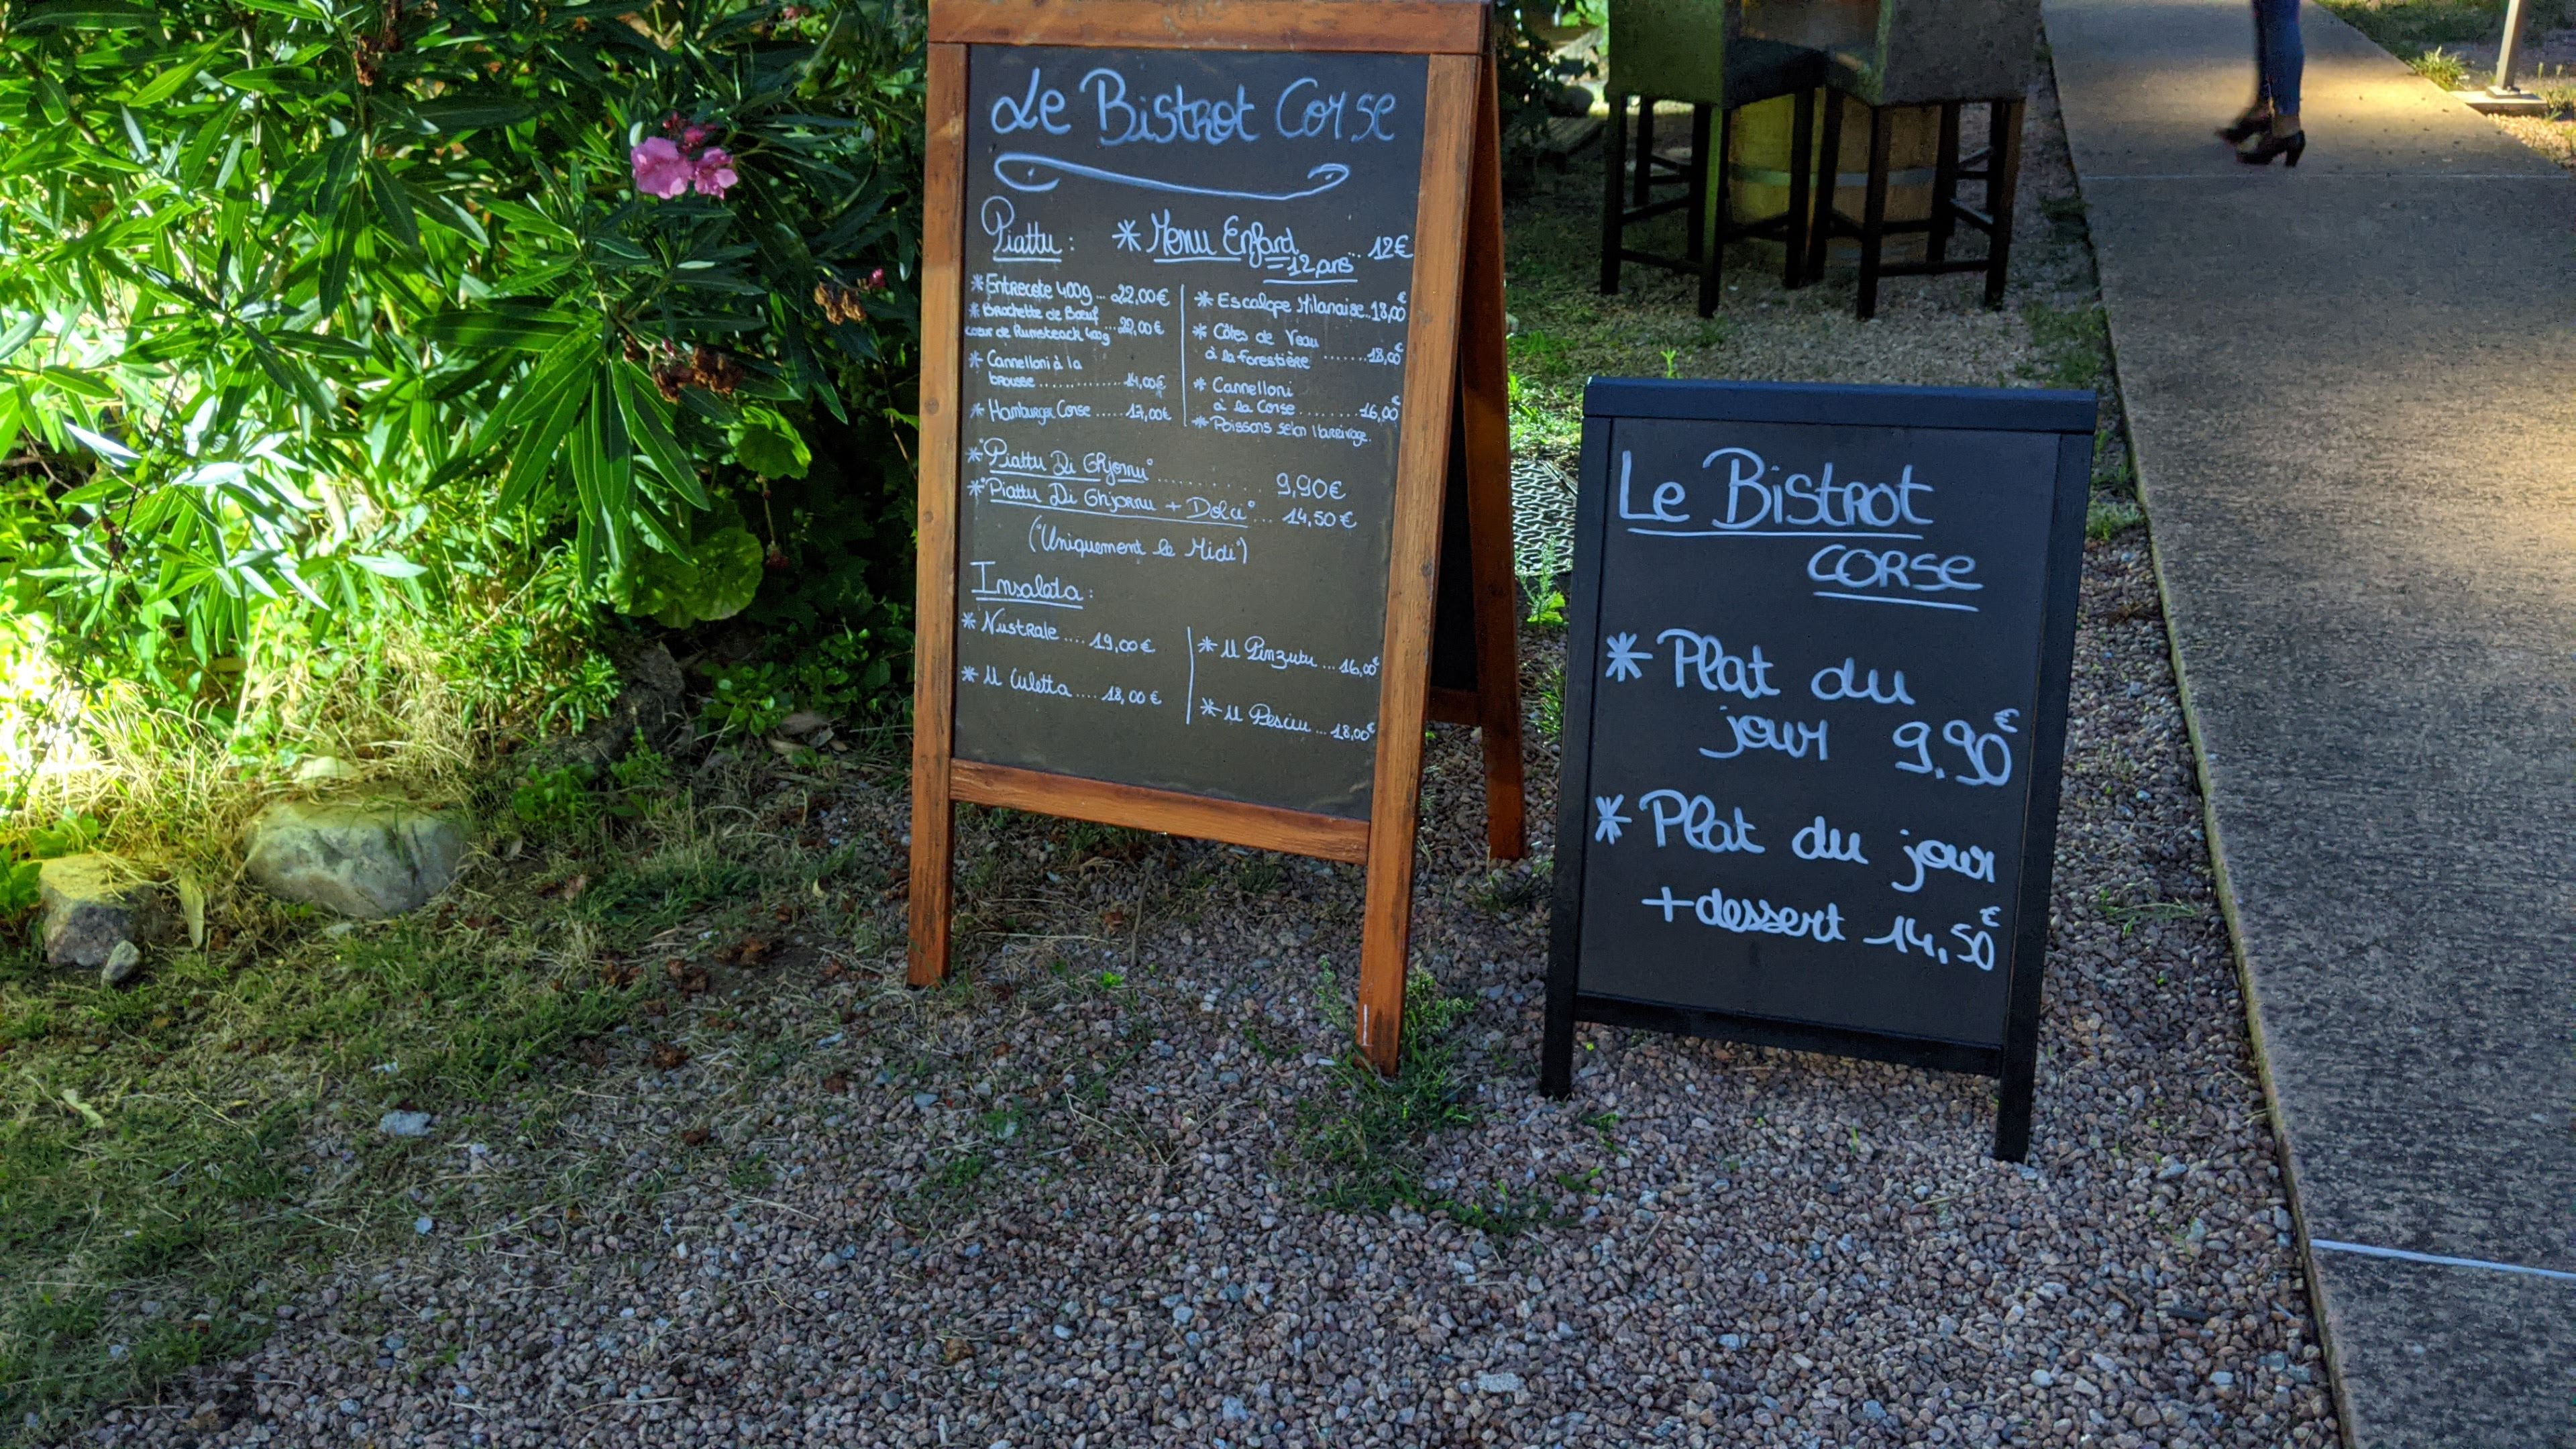 Le Bistrot Corse
Piattu : * Menu Enfant ... 12€
- 12 ans
* Entrecote 400g ... 22,00€
* Brochette de Bœuf
cœur de Rumsteack 400g ... 22,00€
* Cannelloni à la
brousse ............ 14,00€
* Hamburger Corse ...... 17,00€
* Escalope Milanaise .. 18,00€
* Côtes de Veau
à la forestière ....... 18,00€
* Cannelloni
à la Corse ........ 16,00€
* Poissons selon l'arrivage.
* "Piattu Di Ghjornu" .......... 9,90€
* "Piattu Di Ghjornu + Dolci" ... 14,50€
("Uniquement le Midi")
Insalata :
* Nustrale .... 19,00€
* U Culetta .... 18,00€
* U Pinzutu ... 16,00€
* U Pesciu ... 18,00€
Le Bistrot
CORSE
* Plat du
jour 9.90€
* Plat du jour
+dessert 14,50€